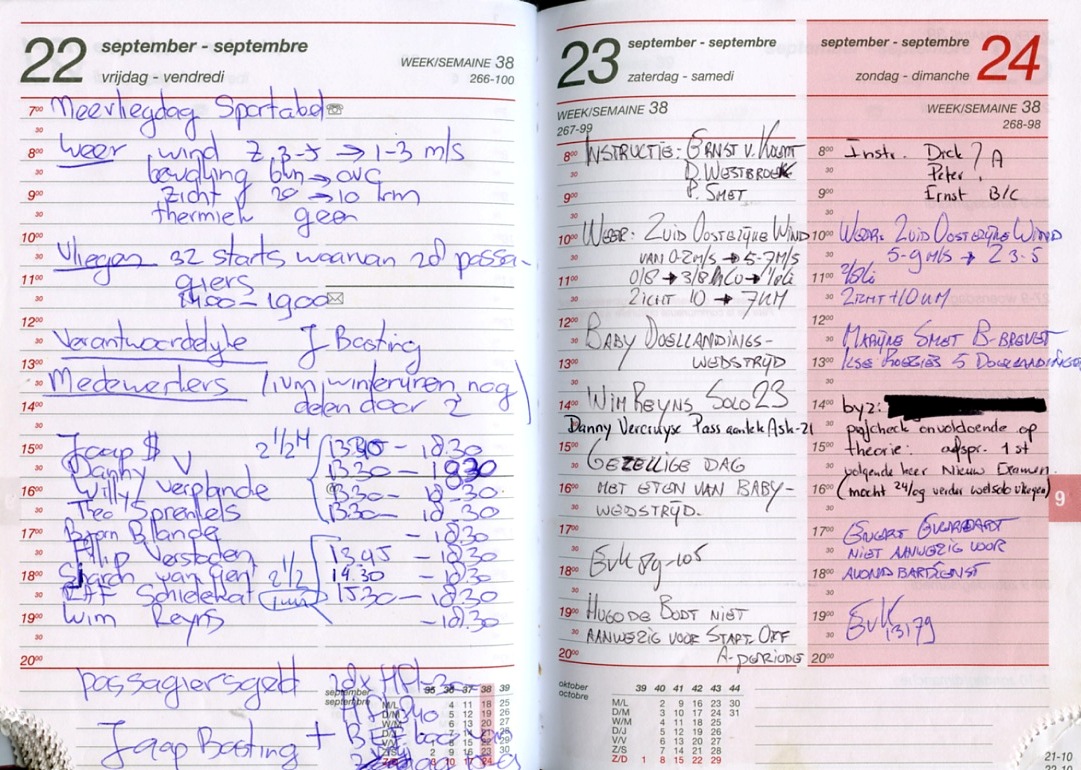 22 september - septembre
vrijdag - vendredi
WEEK/SEMAINE 38
266-100
7⁰⁰ Meevliegdag Sportabel
30
8⁰⁰ Weer wind Z 3-5 → 1-3 m/s
30 bewolking bkn → ovc
9⁰⁰ zicht 20 → 10 km
30 thermiek geen
10⁰⁰
30 Vliegen 32 starts waarvan 28 passa-
11⁰⁰ giers
30 1400 - 1900
12⁰⁰
30 Verantwoordelyke J Basting
13⁰⁰
30 Medewerkers (ivm winteruren nog
14⁰⁰ delen door 2)
30
15⁰⁰ Jaap $ 2 1/2 - 18.30
30 Danny V 13.30 - 1830
16⁰⁰ Willy Verplancke 13.30 - 18.30
30 Theo Sprenkels 13.30 - 18.30
17⁰⁰ Bjorn Blange - 18.30
30 Filip 13.45 - 18.30
18⁰⁰ 2 1/2 14.30 - 18.30
30 Eff Schietekat 15.30 - 18.30
19⁰⁰ Wim Reyns - 18.30
30
20⁰⁰
passagiersgeld 28x
Jaap Basting +
september
septembre
35 36 37 38 39
M/L 4 11 18 25
D/M 5 12 19 26
W/M 6 13 20 27
23 september - septembre
zaterdag - samedi
WEEK/SEMAINE 38
267-99
8⁰⁰ INSTRUCTIE: ERNST V.
30 D. WESTBROEK
9⁰⁰ P. SMET
30
10⁰⁰ WEER: ZUID OOSTELIJKE WIND
30 VAN 0-2 M/S → 5-7 M/S
11⁰⁰ 0/8 → 3/8
30 ZICHT 10 → 7 KM
12⁰⁰
30 BABY DOELLANDINGS-
13⁰⁰ WEDSTRIJD
30
14⁰⁰ WIM REYNS SOLO 23
30 Danny Vercruysse Pass aantek Ask-21
15⁰⁰
30 GEZELLIGE DAG
16⁰⁰ MET ETEN VAN BABY-
30 WEDSTRIJD.
17⁰⁰
30 EvK 89-105
18⁰⁰
30
19⁰⁰ HUGO DE BODT NIET
30 AANWEZIG VOOR START. OFF
20⁰⁰ A-PERIODE
oktober
octobre
39 40 41 42 43 44
M/L 2 9 16 23 30
D/M 3 10 17 24 31
W/M 4 11 18 25
D/J 5 12 19 26
V/V 6 13 20 27
Z/S 7 14 21 28
Z/D 1 8 15 22 29
september - septembre 24
zondag - dimanche
WEEK/SEMAINE 38
268-98
8⁰⁰ Instr. Dick ? A
30 Peter
9⁰⁰ Ernst B/C
30
10⁰⁰ WEER: ZUID OOSTELIJKE WIND
30 5-9 M/S → 2 3-5
11⁰⁰
30 ZICHT +10 KM
12⁰⁰ MARIJNE SMET B-BREVET
30
13⁰⁰ ILSE 5 DOELLANDINGEN
30
14⁰⁰ byz:
30 profcheck onvoldoende op
15⁰⁰ theorie: afspr. 1st
30 volgende keer Nieuw Examen.
16⁰⁰ (mocht 24/09 verder wel solo vliegen)
30
17⁰⁰
30 NIET AANWEZIG VOOR
18⁰⁰ AVOND BARDIENST
30
19⁰⁰ EvK
30 13179
20⁰⁰
9
21-10
22-10